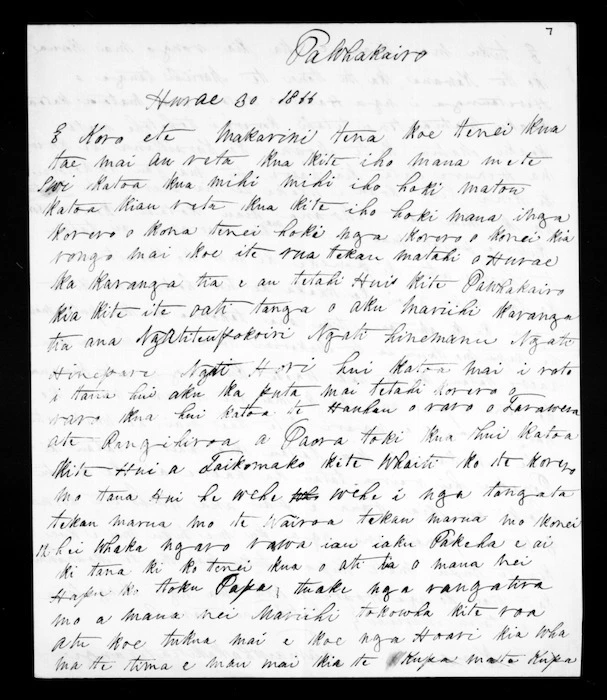 7
Pawhakairo
Hurae 30 1866
E Koro ete Makarini tena koe tenei kua
tae mai au reta kua kite iho maua mete
Iwi katoa kua mihi mihi iho hoki matou
katoa kiau reta kua kite iho hoki maua inga
korero o kona tenei hoki nga korero o konei kia
rongo mai koe ite rua tekau matahi o Hurae
ka karanga tia e au tetahi Huis kite Pawhakairo
kia kite ite oati tanga o aku mariihi karanga
tia ana Ngatiteupokoiri Ngati hinemanu Ngati
Hinepare Ngti Hori hui katoa mai i roto
i tana hui aku ka puta mai tetahi korero o
raro kua hui katoa te Hauhau o raro o Tarawera
ate Rangihiroa a Paora toki kua hui katoa
kite Hui a Taikomako kite Whaiti ko te korero
mo tana Hui he wehe wehe i nga tangata
tekau marua mo te Wairoa tekau marua mo konei
hei whaka ngaro rawa iau iaku Pakeha e ai
ki tana ki ko tenei kua o ati ta o maua nei
Hapu ko toku Papa, tuake nga rangatira
mo a maua nei Mariihi tokowha kite roa
atu koe tukua mai e koe nga Hoari kia wha
ma te tima e mau mai kia te Kupa mate Kupa